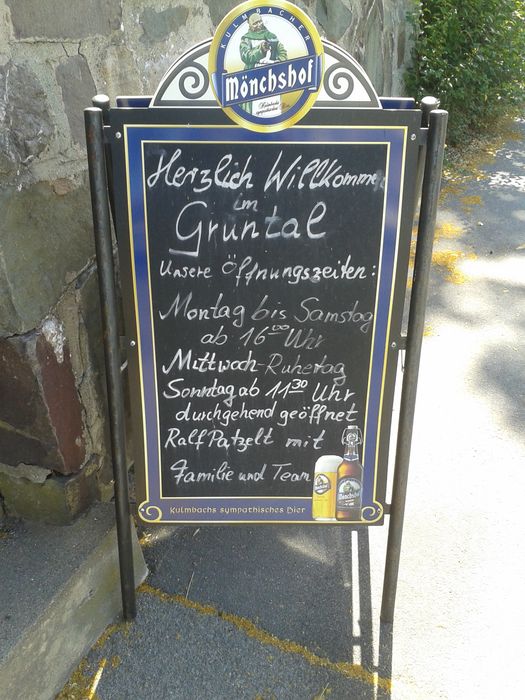 KULMBACHER
Mönchshof
Kulmbachs
sympathisches Bier
Herzlich Willkommen
im
Grüntal
Unsere Öffnungszeiten:
Montag bis Samstag
ab 16⁰⁰ Uhr
Mittwoch-Ruhetag
Sonntag ab 11³⁰ Uhr
durchgehend geöffnet
Ralf Patzelt mit
Familie und Team
Mönchshof
Kulmbachs sympathisches Bier